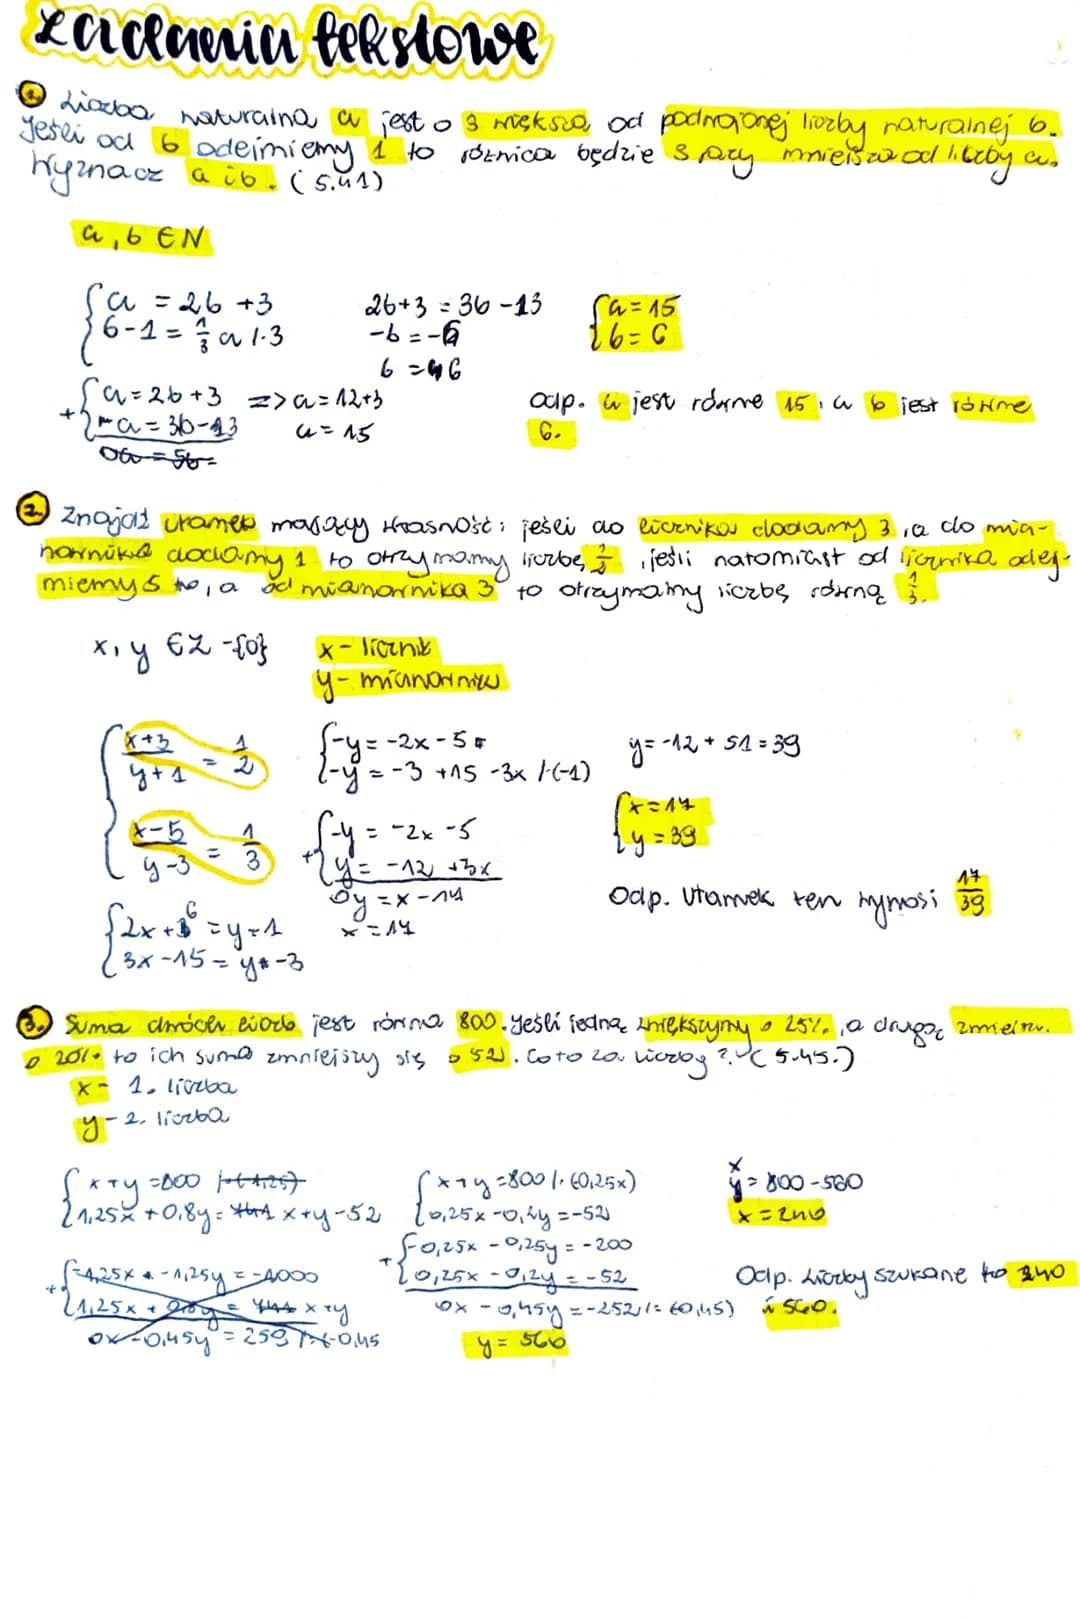 zadania tekstowe
1. Liczba naturalna a jest o 3 większa od podwojonej liczby naturalnej b.
Jeśli od b odejmiemy 1 to różnica będzie 3 razy mniejsza od liczby a.
Wyznacz a i b. (5.41)
a, b ∈ N
{ a = 2b + 3
b - 1 = 1/3 a /·3
+ { a = 2b + 3 => a = 12+3
a = 15
2b+3 = 3b -
-b = -6
b = 6
{ a = 15
b = 6
Odp. a jest równe 15, a b jest równe
6.
2. Znajdź ułamek mający własność: jeśli do licznika dodamy 3, a do mia-
nownika dodamy 1 to otrzymamy liczbę 1/2, jeśli natomiast od licznika odej-
miemy 5, a od mianownika 3 to otrzymamy liczbę równą 1/3.
x, y ∈ Z - {0}
x - licznik
y - mianownik
{ x+3/y+1 = 1/2
x-5/y-3 = 1/3
{ 2x + 6 = y+1
3x - 15 = y-3
{ -y = -2x - 5
-y = -3 + 15 - 3x /·(-1)
+ { -y = -2x - 5
y = -12 + 3x
0y = x - 17
x = 17
y = -12 + 51 = 39
{ x = 17
y = 39
Odp. Ułamek ten wynosi 17/39
3. Suma dwóch liczb jest równa 800. Jeśli jedną zwiększymy o 25%, a drugą zmniejsz.
o 20% to ich suma zmniejszy się o 52. Co to za liczby? (5.45.)
x - 1. liczba
y - 2. liczba
{ x+y = 800 /·(-1,25)
1,25x + 0,8y = x+y-52
+ { -1,25x - 1,25y = -1000
1,25x + 0,8y = x+y
0x - 0,45y = 259
{ x+y = 800 /·(-0,25x)
0,25x - 0,2y = -52
+ { -0,25x - 0,25y = -200
0,25x - 0,2y = -52
0x - 0,45y = -252 /: (-0,45)
y = 560
x = 800 - 560
x = 240
Odp. Liczby szukane to 240
i 560.